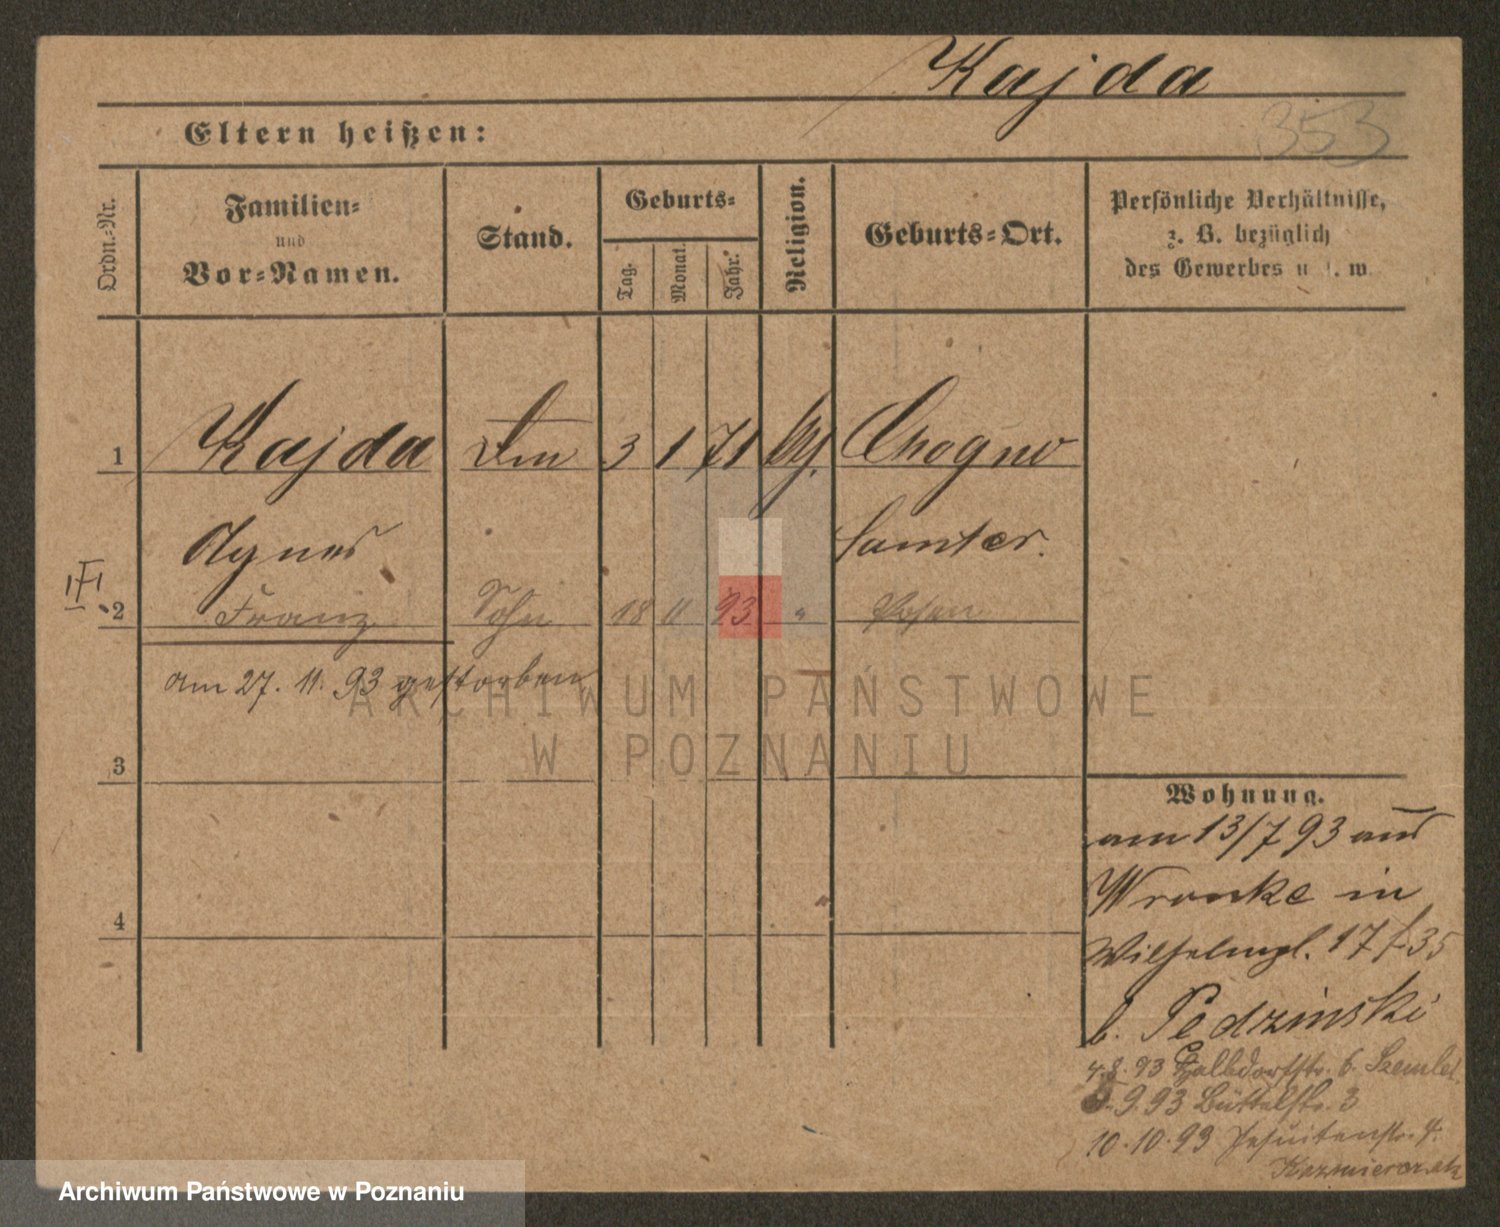 Kajda
353
Eltern heißen:
Ordn.-Nr.
Familien-
und
Vor-Namen.
Stand.
Geburts-
Tag.
Monat.
Jahr.
Religion.
Geburts-Ort.
Persönliche Verhältnisse,
z. B. bezüglich
des Gewerbes u. s. w.
1 Kajda 3 1 71 Chogno
Agnes Samter.
2 Franz Sohn 18 11 93 " Posen
am 27. 11. 93 gestorben
3
4
Wohnung.
am 13/7 93 aus
Wronke in
Wilhelmpl. 17
b. Pedzinski
4.8.93 Halbdorfstr. 6.
9.93 Büttelstr. 3
10.10.93 Jesuitenstr. 4.
Kazmierczak
ARCHIWUM PAŃSTWOWE
W POZNANIU
Archiwum Państwowe w Poznaniu